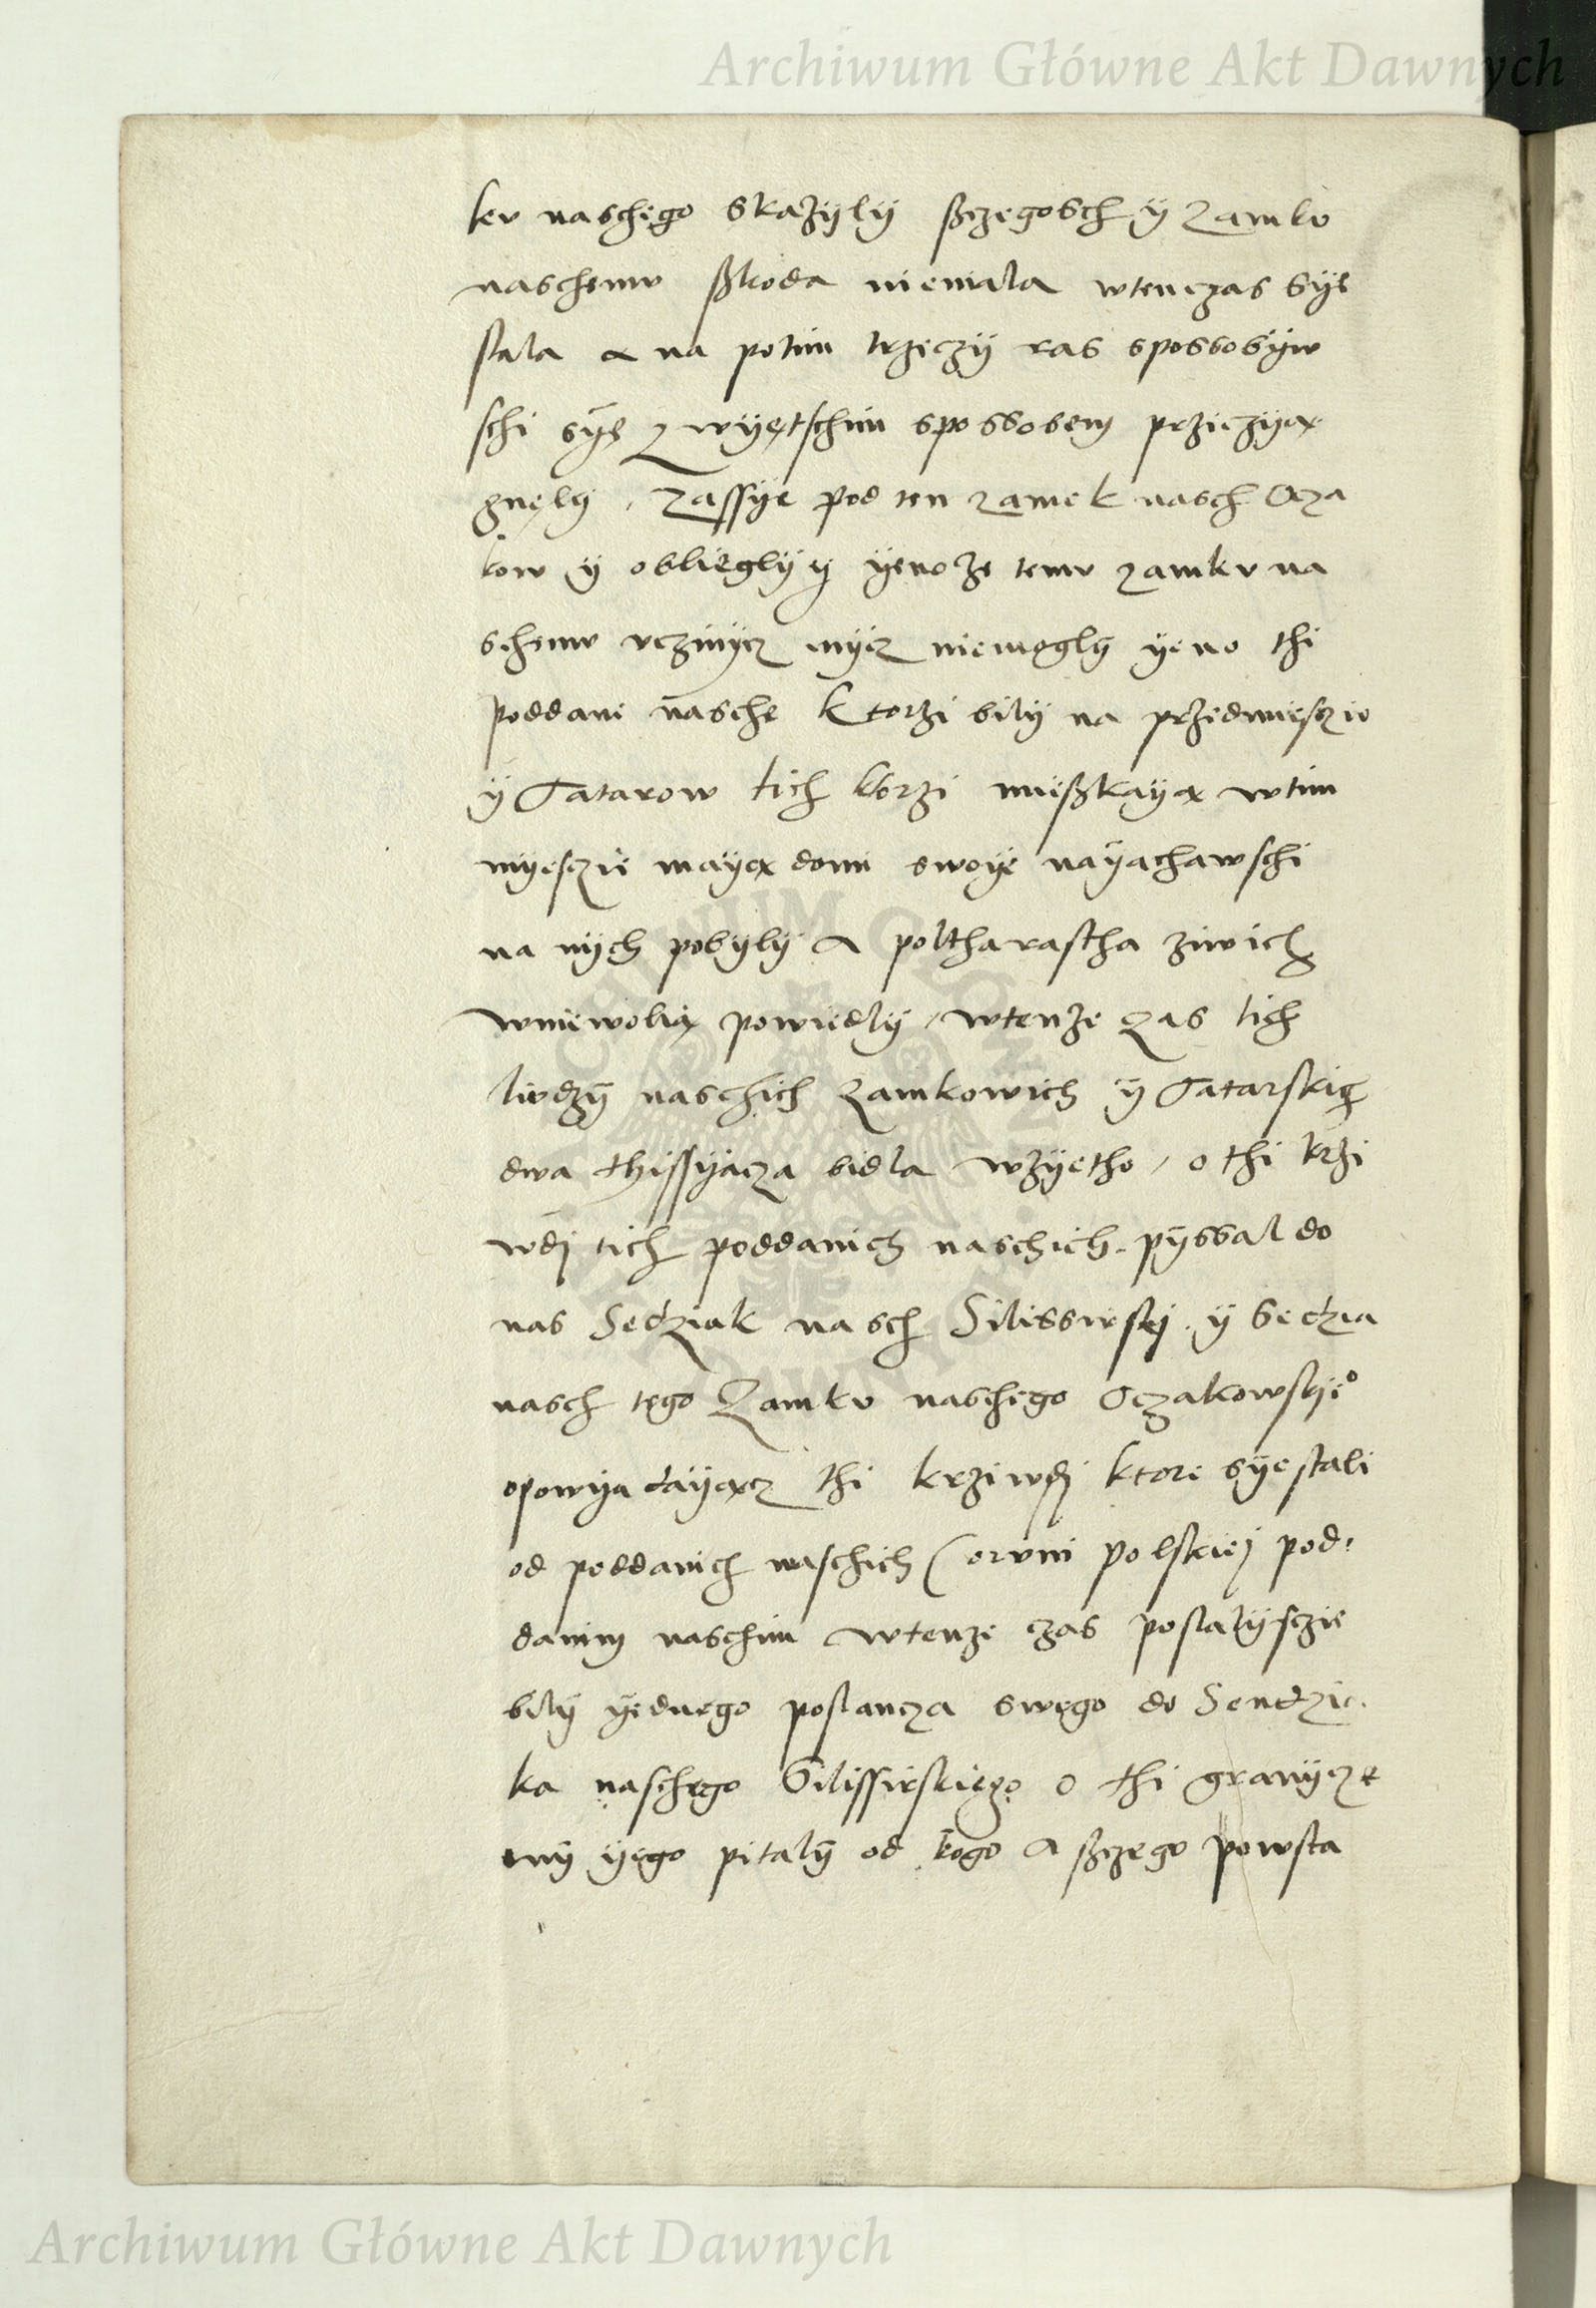 Archiwum Główne Akt Dawnych
kv naschego skazÿlÿ ßczegosch ÿ zamkv
naschemv ßkoda niemala wtenczas sÿe
stala a na potim trzeczÿ ras spossobÿw
schi sÿe z wÿętschim spossobem prziczÿą
gnęlÿ, zassÿe pod ten zamek nasch Ocza
kow ÿ oblieglÿ ÿ ÿenoze temv zamkv na
schemv vczinÿcz nÿcz niemoglÿ ÿeno thi
poddani nasche ktorzi bilÿ na przedmiesczie
ÿ Tatarow tich ktorzi mießkaÿą wtim
mÿesczie maÿą domi swoÿe naÿachawschi
na nÿch pobÿlÿ a poltharastha ziwich
wniewolią powiedlÿ, wtenze czas tich
liudzÿ naschich zamkowich ÿ Tatarskich
dwa thissÿącza bidla wzÿetho, o thi krzi
wdj tich poddanich naschich pÿssal do
nas Sedziak nasch Silissirskj ÿ sedzia
nasch tego Zamkv naschego Oczakowskie°
opowÿadaÿącz thi krziwdj ktore sÿe stali
od poddanich waschich Corvni polskiej pod:
danim naschim wtenze czas poslalÿsczie
bilÿ ÿednego poslancza swego do Sendzia
ka naschego Silissirskiego o thi granÿcze
mÿ ÿego pitalÿ od kogo a ßczego powsta
Archiwum Główne Akt Dawnych